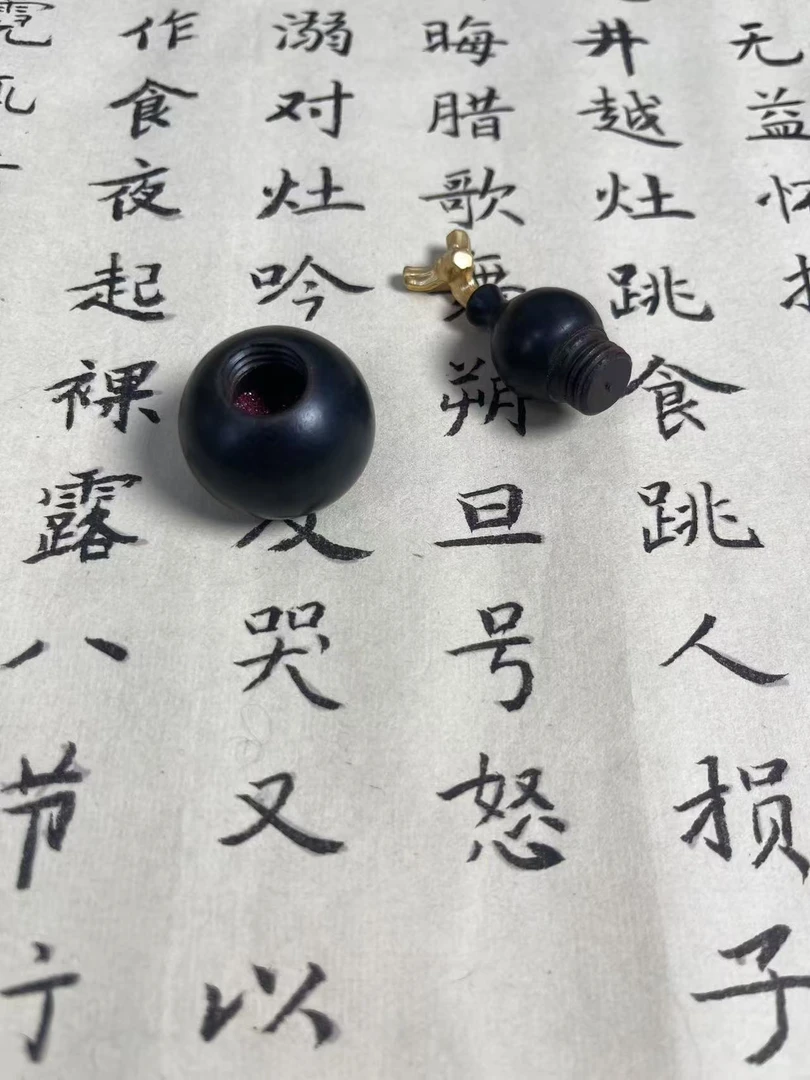 无益怀
井越灶跳食跳人损子
晦腊歌朔旦号怒
溺对灶吟及哭又以
作食夜起裸露八节